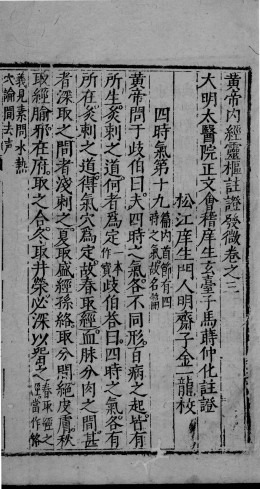 黃帝內經靈樞註證發微卷之三
大明太醫院正文會稽庠生玄臺子馬蒔仲化註證
松江庠生門人明齋子金一龍校
四時氣第十九
篇內首節有四
時之氣故名篇
黃帝問于歧伯曰夫四時之氣各不同形百病之起皆有
所生灸刺之道何者爲定
一本
作寳
歧伯荅曰四時之氣各有
所在灸刺之道得氣穴爲定故春取經血脉分肉之間甚
者深取之間者淺刺之夏取盛經孫絡取分間絕皮膚秋
取經腧邪在府取之合冬取井滎必深以留之
春取經之
經當作絡
義見素問水熱
穴論間去声